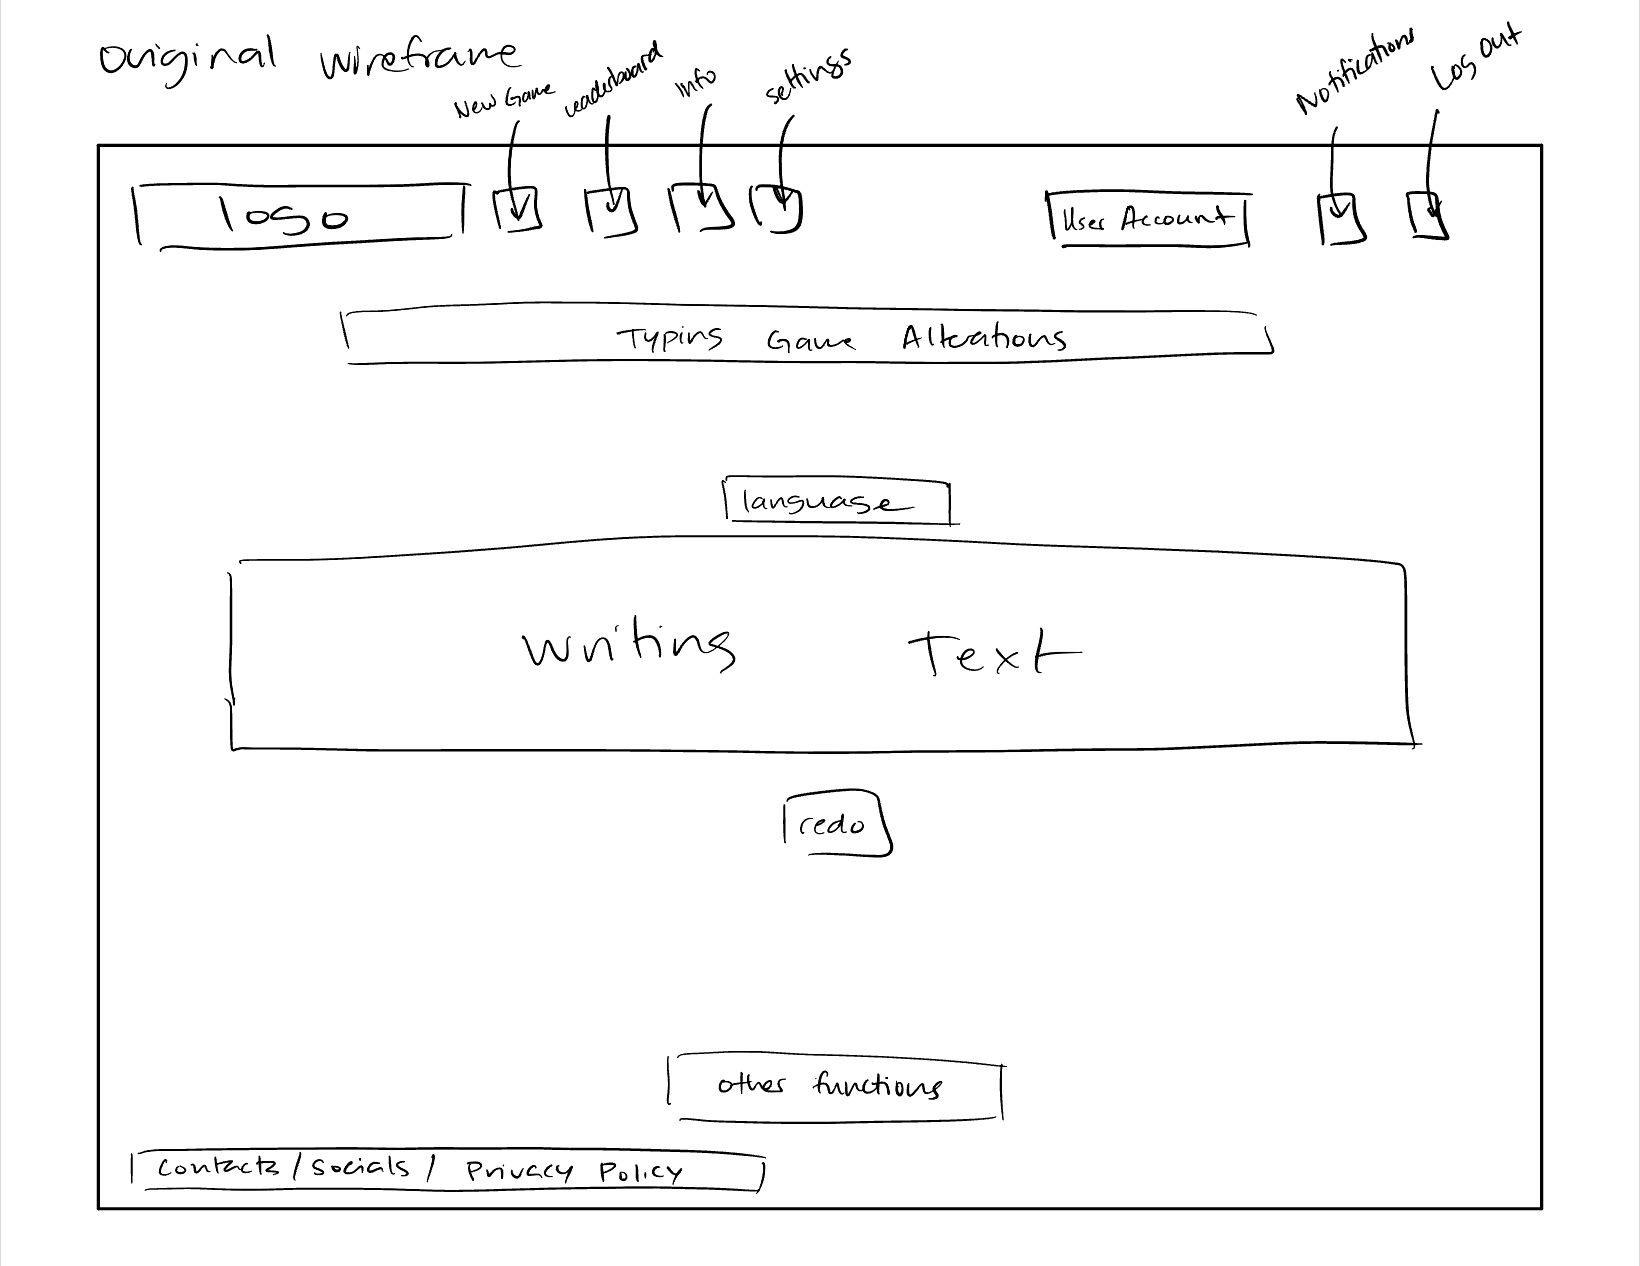 Original Wireframe
New Game
Leaderboard
Info
settings
Notifications
Log Out
logo
User Account
Typing Game Alterations
language
Writing Text
redo
other functions
Contacts / Socials / Privacy Policy